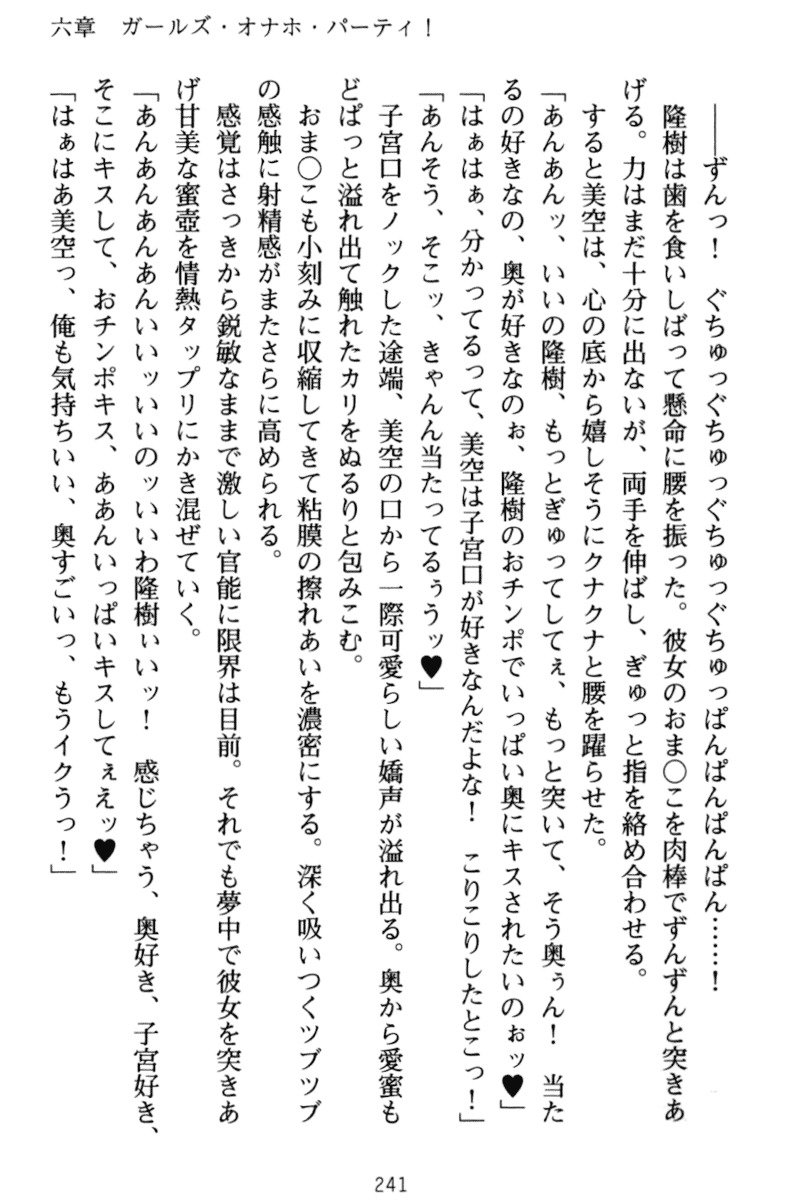 六章　ガールズ・オナホ・パーティ！
――ずんっ！　ぐちゅっぐちゅっぐちゅっぐちゅっぱんぱんぱんぱん……！
隆樹は歯を食いしばって懸命に腰を振った。彼女のおま〇こを肉棒でずんずんと突きあ
げる。力はまだ十分に出ないが、両手を伸ばし、ぎゅっと指を絡め合わせる。
すると美空は、心の底から嬉しそうにクナクナと腰を躍らせた。
「あんあんッ、いいの隆樹、もっとぎゅってしてぇ、もっと突いて、そう奥ぅん！　当た
るの好きなの、奥が好きなのぉ、隆樹のおチンポでいっぱい奥にキスされたいのぉッ♥」
「はぁはぁ、分かってるって、美空は子宮口が好きなんだよな！　こりこりしたとこっ！」
「あんそう、そこッ、きゃんん当たってるぅうッ♥」
子宮口をノックした途端、美空の口から一際可愛らしい嬌声が溢れ出る。奥から愛蜜も
どぱっと溢れ出て触れたカリをぬるりと包みこむ。
おま〇こも小刻みに収縮してきて粘膜の擦れあいを濃密にする。深く吸いつくツブツブ
の感触に射精感がまたさらに高められる。
感覚はさっきから鋭敏なままで激しい官能に限界は目前。それでも夢中で彼女を突きあ
げ甘美な蜜壺を情熱タップリにかき混ぜていく。
「あんあんあんあんいいッいいのッいいわ隆樹ぃいッ！　感じちゃう、奥好き、子宮好き、
そこにキスして、おチンポキス、ああんいっぱいキスしてぇえッ♥」
「はぁはあ美空っ、俺も気持ちいい、奥すごいっ、もうイクうっ！」
241